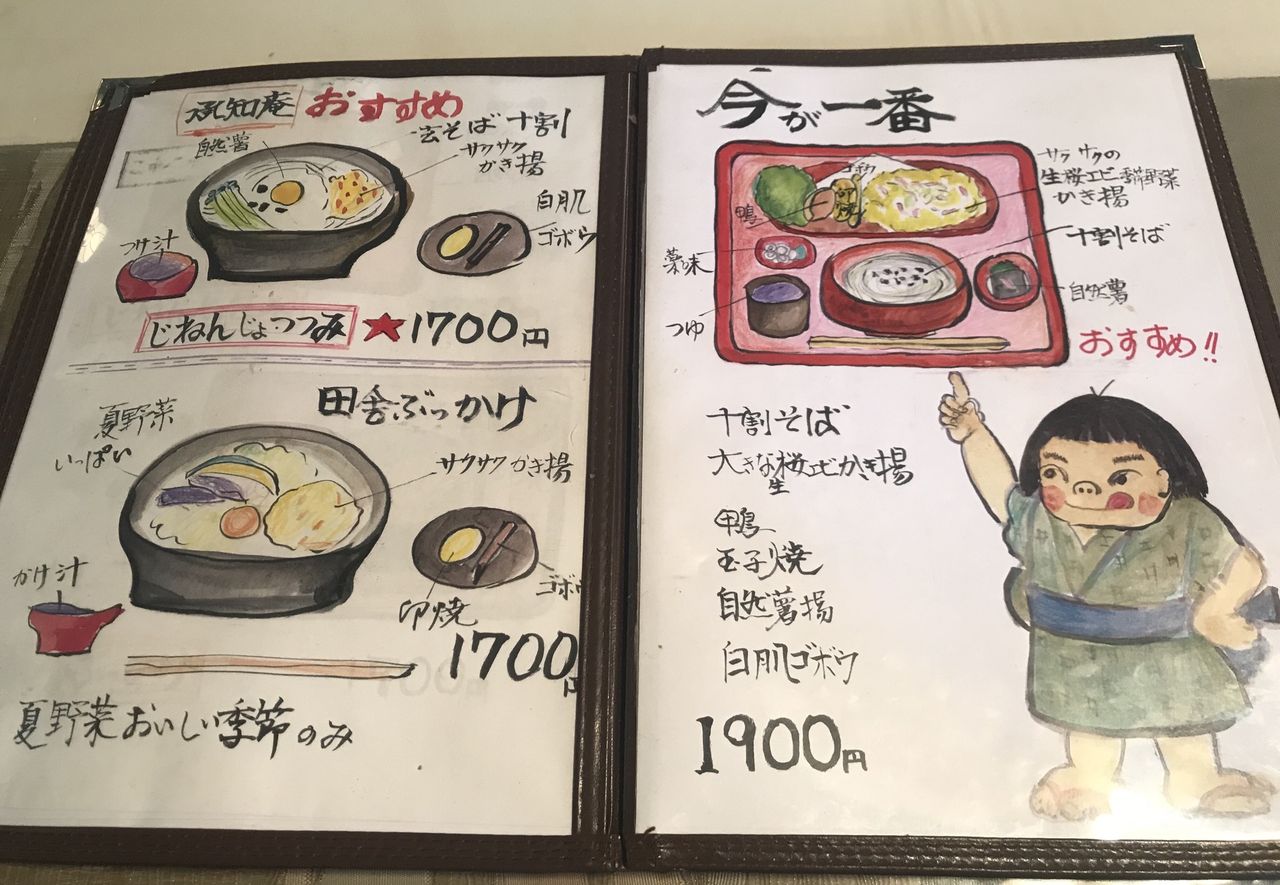 承知庵 おすすめ
玄そば十割
自然薯
サクサク
かき揚
白肌
ゴボウ
つけ汁
じねんじょつつみ ★1700円
田舎ぶっかけ
夏野菜
いっぱい
サクサクかき揚
かけ汁
ゴボウ
卵焼
1700円
夏野菜おいしい季節のみ
今が一番
サクサクの
生桜エビ香味野菜
かき揚
ゴボウ
鴨
十割そば
薬味
自然薯
つゆ
おすすめ!!
十割そば
大きな生桜エビかき揚
鴨
玉子焼
自然薯揚
白肌ゴボウ
1900円